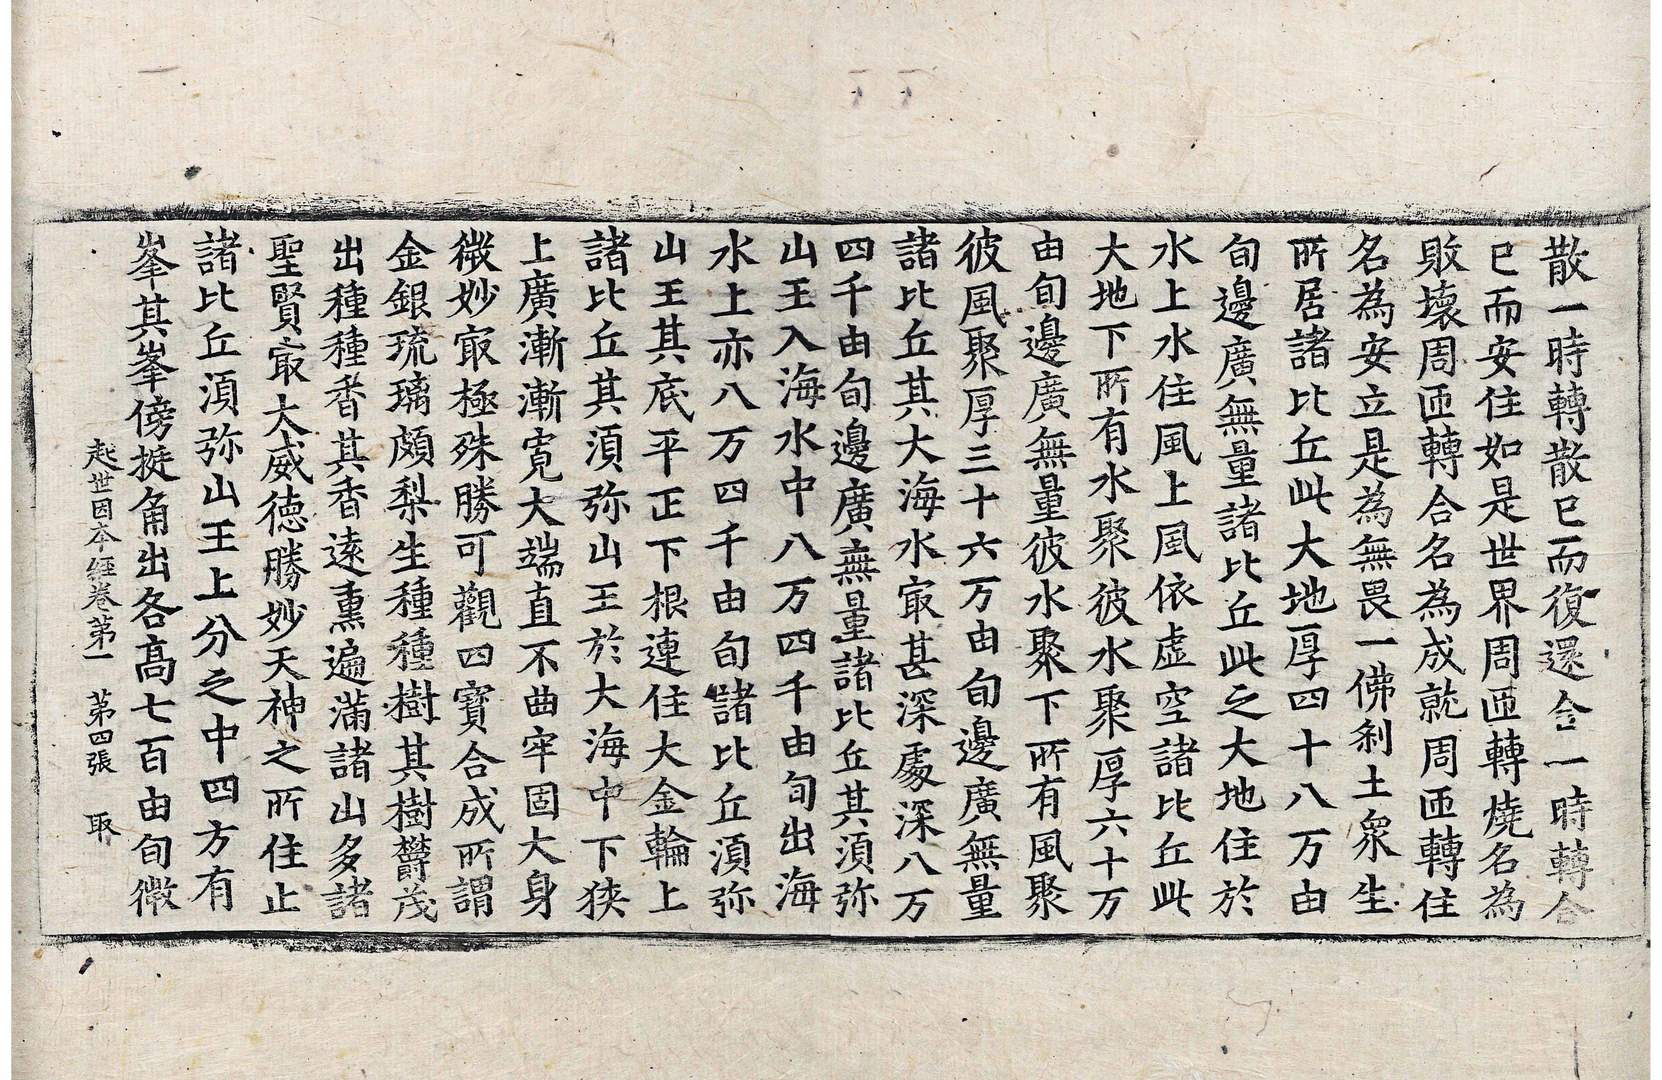 散一時轉散已而復還合一時轉合
已而安住如是世界周匝轉燒名為
敗壞周匝轉合名為成就周匝轉住
名為安立是為無畏一佛剎土眾生
所居諸比丘此大地厚四十八万由
旬邊廣無量諸比丘此之大地住於
水上水住風上風依虛空諸比丘此
大地下所有水聚彼水聚厚六十万
由旬邊廣無量彼水聚下所有風聚
彼風聚厚三十六万由旬邊廣無量
諸比丘其大海水㝡甚深處深八万
四千由旬邊廣無量諸比丘其湏弥
山王入海水中八万四千由旬出海
水上亦八万四千由旬諸比丘湏弥
山王其底平正下根連住大金輪上
諸比丘其湏弥山王於大海中下狹
上廣漸漸寬大端直不曲牢固大身
微妙㝡極殊勝可觀四寶合成所謂
金銀琉璃頗梨生種種樹其樹欝茂
出種種香其香遠熏遍滿諸山多諸
聖賢㝡大威德勝妙天神之所住止
諸比丘湏弥山王上分之中四方有
峯其峯傍挺角出各高七百由旬微
起世因本經卷第一 第四張 取